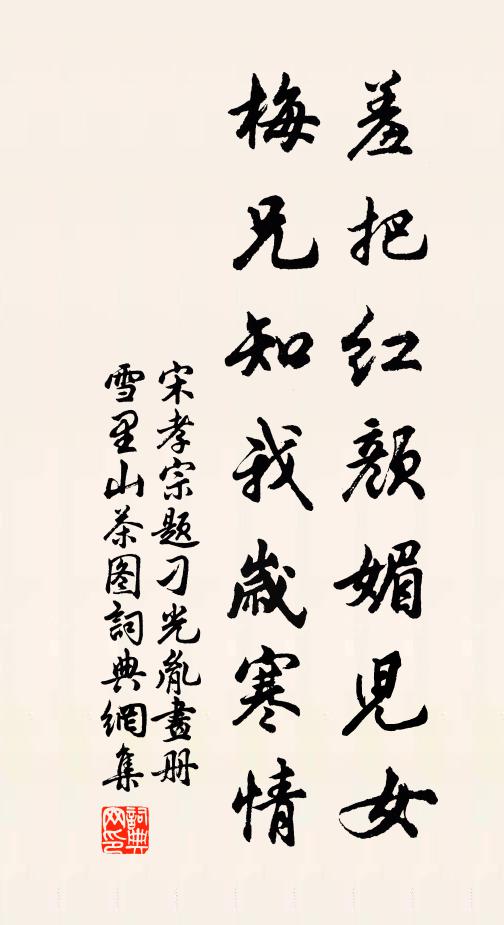 羞把红颜媚児女
梅兄知我歳寒情
宋孝宗题刁光胤畫册
雪里山茶图詞典網集
詞典网印